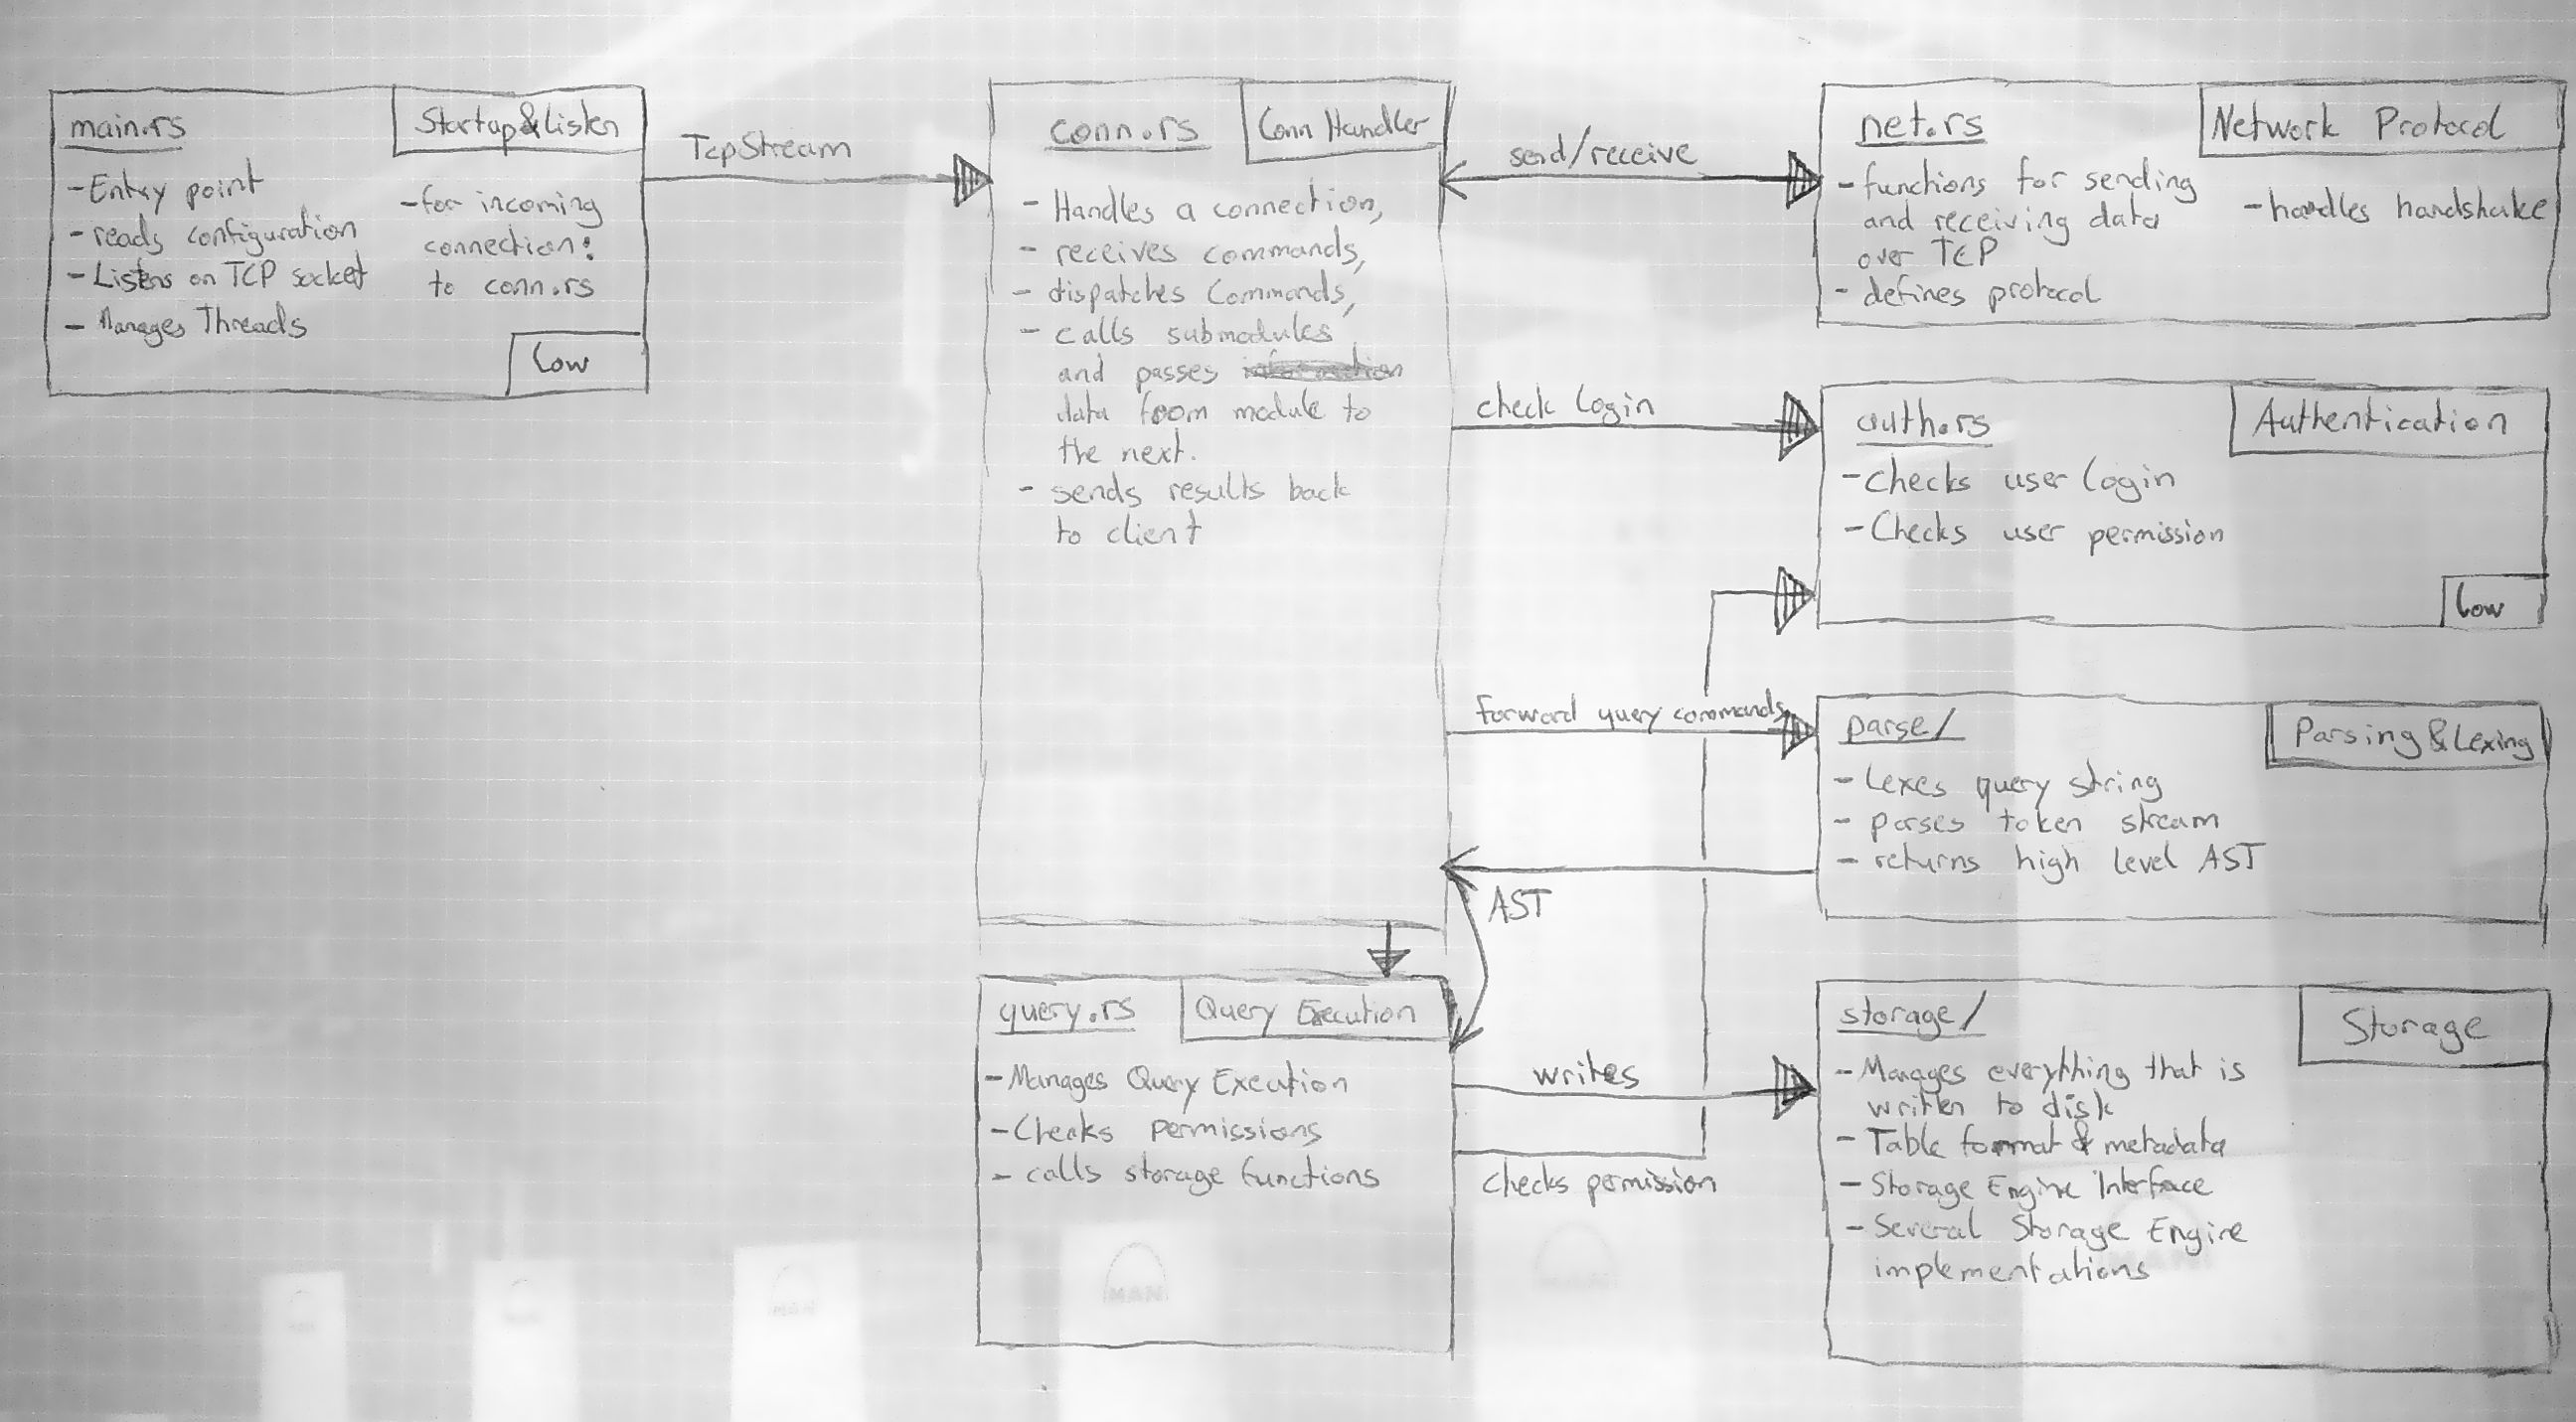 main.rs
Startup&Listen
-Entry point
-reads configuration
-Listens on TCP socket
- Manages Threads
-for incoming
connection:
to conn.rs
Low
TcpStream
conn.rs
Conn Handler
- Handles a connection,
- receives commands,
- dispatches Commands,
- calls submodules
and passes
data from module to
the next.
- sends results back
to client
send/receive
net.rs
Network Protocol
- functions for sending
and receiving data
over TCP
- defines protocol
-handles handshake
check login
auth.rs
Authentication
-Checks user login
-Checks user permission
Low
forward query commands
parse/
Parsing&Lexing
- Lexes query string
- parses token stream
- returns high level AST
AST
query.rs
Query Execution
-Manages Query Execution
-Checks permissions
- calls storage functions
writes
checks permission
storage/
Storage
- Manages everything that is
written to disk
- Table format & metadata
- Storage Engine Interface
- Several Storage Engine
implementations
MAN